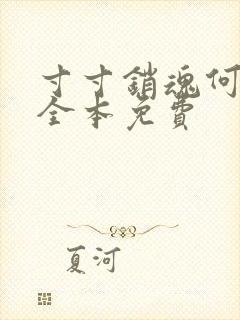 寸寸銷魂何
全本免費
夏河